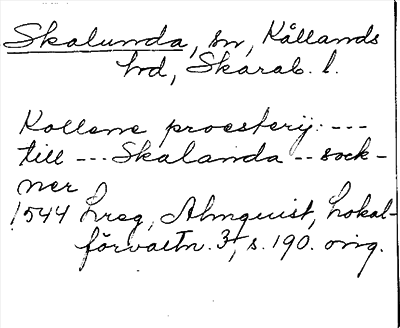 Skalunda, sn, Kållands
hd, Skarab. l.
Kollene proesterij: ---
till --- Skalanda -- sock-
ner
1544 hreg, Almquist, Lokal-
förvaltn. 3, s. 190. orig.